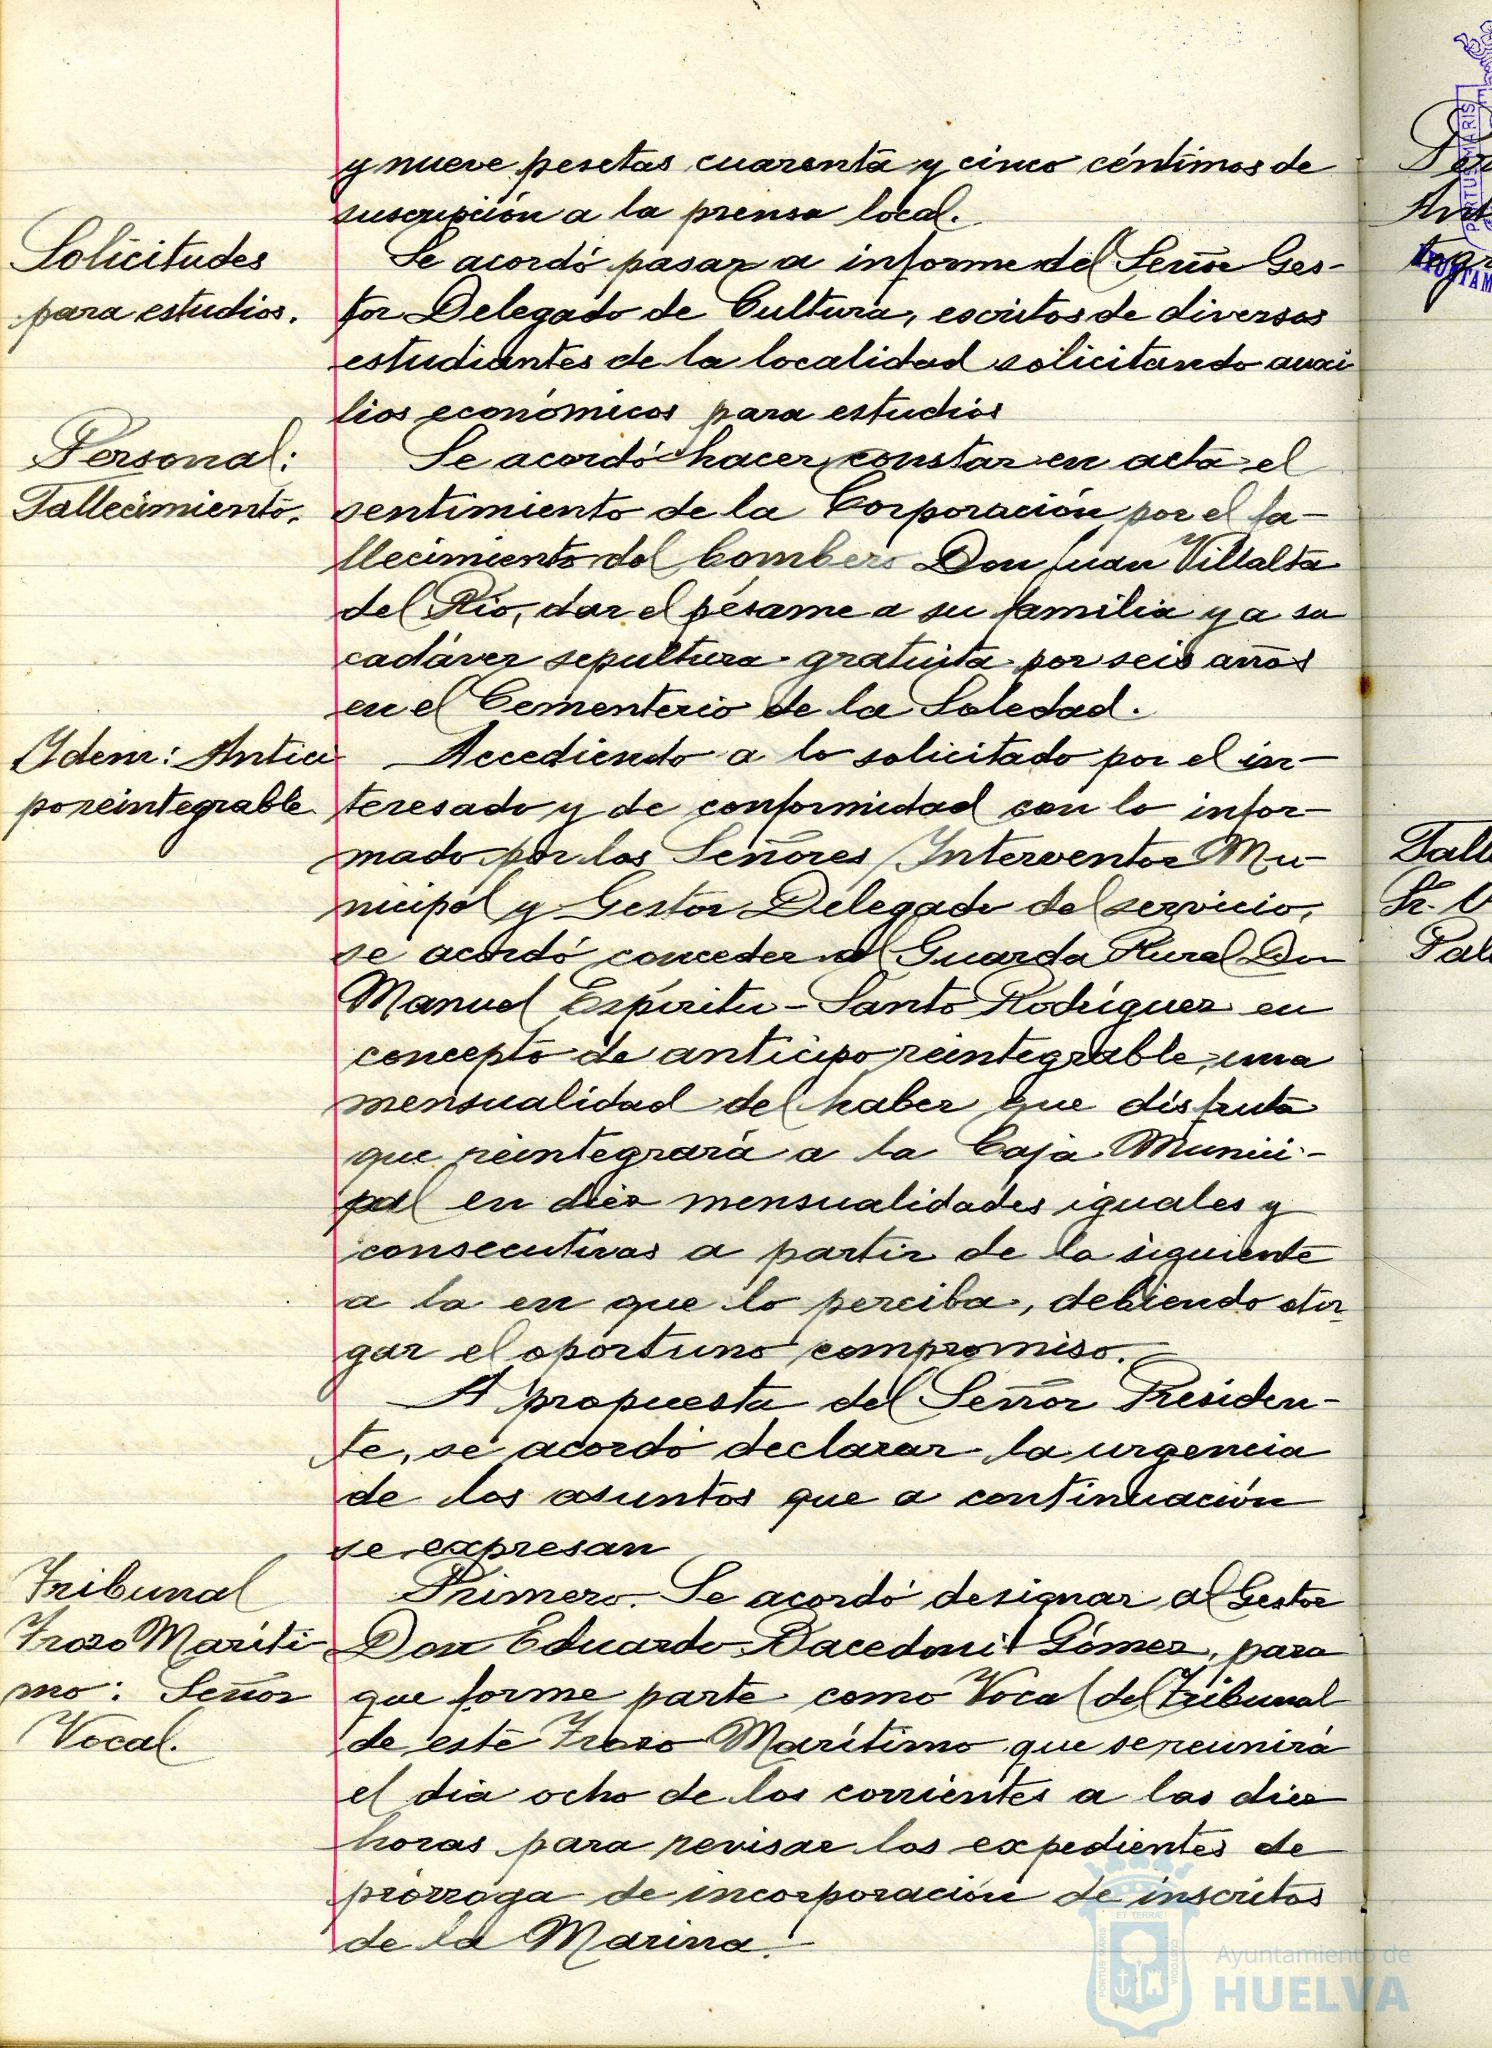 y nueve pesetas cuarenta y cinco céntimos de
suscripción a la prensa local.
Solicitudes
para estudios.
Se acordó pasar a informe del Señor Ges-
tor Delegado de Cultura, escritos de diversos
estudiantes de la localidad solicitando auxi
lios económicos para estudios
Personal:
Fallecimiento.
Se acordó hacer constar en acta el
sentimiento de la Corporación por el fa-
llecimiento del bombero Don Juan Villalta
del Río, dar el pésame a su familia y a su
cadáver sepultura gratuita por seis años
en el Cementerio de la Soledad.
Idem: Antici
po reintegrable
Accediendo a lo solicitado por el in-
teresado y de conformidad con lo infor-
mado por los Señores Interventor Mu-
nicipal y Gestor Delegado del servicio,
se acordó conceder al Guarda Rural Don
Manuel Espíritu-Santo Rodríguez en
concepto de anticipo reintegrable, una
mensualidad del haber que disfruta
que reintegrará a la Caja Munici-
pal en diez mensualidades iguales y
consecutivas a partir de la siguiente
a la en que lo perciba, debiendo otor
gar el oportuno compromiso.
A propuesta del Señor Presiden-
te, se acordó declarar la urgencia
de los asuntos que a continuación
se expresan
Tribunal
Trozo Maríti
mo: Señor
Vocal.
Primero. Se acordó designar al Gestor
Don Eduardo Gómez, para
que forme parte como Vocal del Tribunal
de este Trozo Marítimo que se reunirá
el dia ocho de los corrientes a las diez
horas para revisar los expedientes de
prórroga de incorporación de inscritos
de la Marina.
Ayuntamiento de
HUELVA